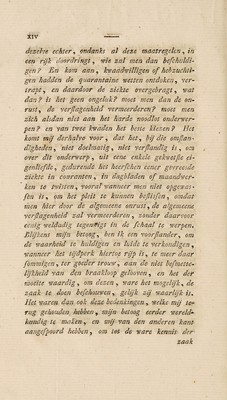 XIV
dezelve echter, ondanks al deze maatregelen, in
een rijk doordringt, wie zal men dan beschuldi-
gen? En kom aan, kwaadwilligen of hebzuchti-
gen hadden de quarantaine wetten ontdoken, ver-
trapt, en daardoor de ziekte overgebragt, wat
dan? is het geen ongeluk? moet men dan de on-
rust, de verslagenheid vermeerderen? moet men
zich alsdan niet aan het harde noodlot onderwer-
pen? en van twee kwaden het beste kiezen? Het
kome mij derhalve voor, dat het, bij die omstan-
digheden, niet doelmatig, niet verstandig is, om
over dit onderwerp, uit eene enkele gekwetste ei-
genliefde, gedurende het heerschen eener gevreesde
ziekte in couranten, in dagbladen of maandwer-
ken te twisten, vooral wanneer men niet opgewas-
sen is, om het pleit te kunnen beslissen, omdat
men hier door de algemeene onrust, de algemeene
verslagenheid zal vermeerderen, zonder daarvoor
eenig voldoende tegenwigt in de schaal te werpen.
Blijkens mijn betoog, ben ik een voorstander, om
de waarheid te huldigen en luide te verkondigen,
wanneer het tijdperk hiertoe rijp is, te meer daar
sommigen, ter goeder trouw, aan de niet besmette-
lijkheid van den braakloop gelooven, en het der
moeite waardig, om dezen, ware het mogelijk, de
zaak te doen beschouwen, gelijk zij waarlijk is.
Het waren dan ook deze bedenkingen, welke mij te-
rug gehouden hebben, mijn betoog eerder wereld-
kundig te maken, en mij van den anderen kant
aangespoord hebben, om tot de ware kennis der
zaak